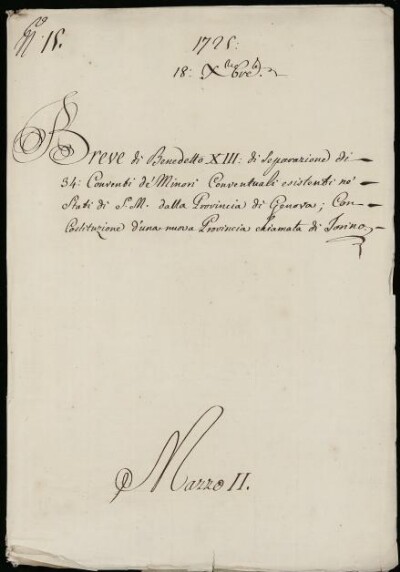 N.º 15.
1725:
18: Xbre.
Breve di Benedetto XIII: di Separazione di
34: Conventi de' Minori Conventuali esistenti ne'
Stati di S. M. dalla Provincia di Genova; Con-
Costituzione d'una nuova Provincia chiamata di Torino.
Mazzo II.